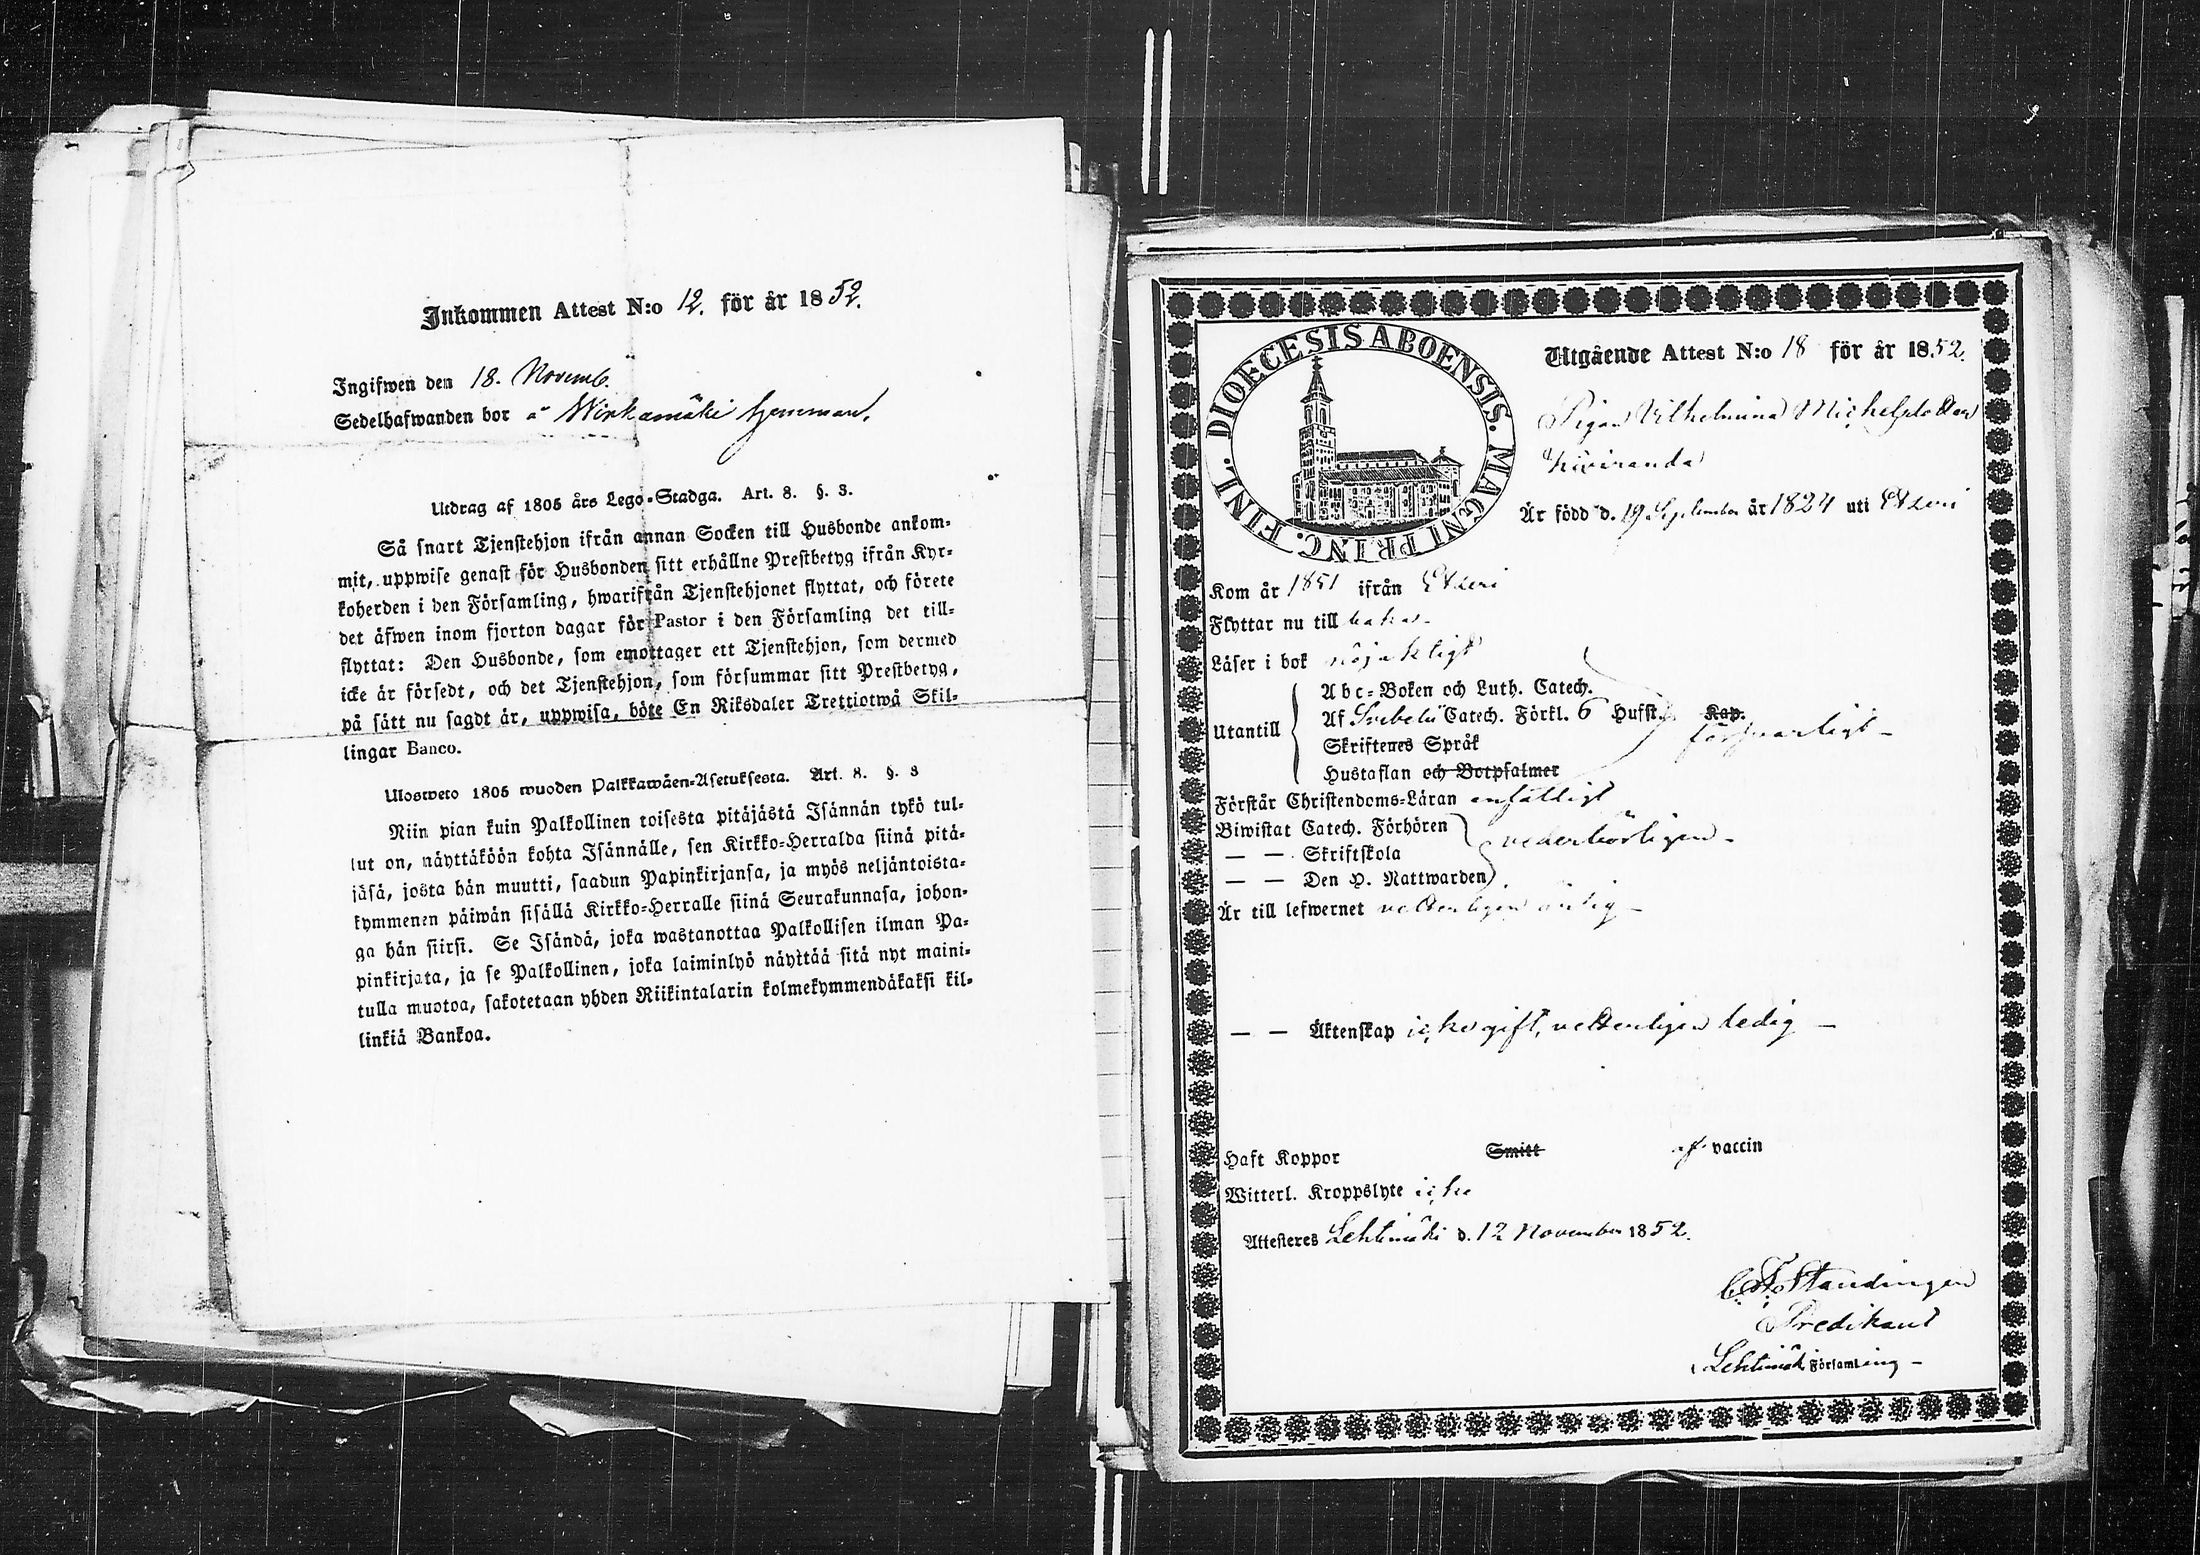 Inkommen Attest N:o 12. för år 1852.
Ingifwen den 18. Novemb.
Sedelhafwanden bor å Wirkamäki hemman.
Utdrag af 1805 års Lego-Stadga. Art. 8. §. 3.
Så snart Tjenstehjon ifrån annan Socken till Husbonde ankom-
mit, uppwise genast för Husbonden sitt erhållne Prestbetyg ifrån Kyr-
koherden i den Församling, hwarifrån Tjenstehjonet flyttat, och förete
det äfwen inom fjorton dagar för Pastor i den Församling det till-
flyttat: Den Husbonde, som emottager ett Tjenstehjon, som dermed
icke är försedt, och det Tjenstehjon, som försummar sitt Prestbetyg,
på sätt nu sagdt är, uppwisa, böte En Riksdaler Trettiotwå Skil-
lingar Banco.
Ulosweto 1805 wuoden Palkkawäen-Asetuksesta. Art. 8. §. 3
Niin pian kuin Palkollinen toisesta pitäjästä Isännän tykö tul-
lut on, näyttäköön kohta Isännälle, sen Kirkko-Herralda siinä pitä-
jäsä, josta hän muutti, saadun Papinkirjansa, ja myös neljäntoista-
kymmenen päiwän sisällä Kirkko-Herralle siinä Seurakunnasa, johon-
ga hän siirsi. Se Isändä, joka wastanottaa Palkollisen ilman Pa-
pinkirjata, ja se Palkollinen, joka laiminlyö näyttää sitä nyt maini-
tulla muotoa, sakotetaan yhden Riikintalarin kolmekymmendäkaksi kil-
linkiä Bankoa.
DIOECESIS ABOENSIS. MAGNI PRINC. FINL.
Utgående Attest N:o 18 för år 1852.
Pigan Vilhelmina Michelsdotter
Kiviranda
Är född d. 19 September år 1824 uti Etseri
Kom år 1851 ifrån Etseri
Flyttar nu till
Läser i bok nöjaktligt
Abc-Boken och Luth. Catech.
Utantill
Af Svebelii Catech. Förkl. 6 Hufst. Kap.
försvarligt
Skriftenes Språk
Hustaflan och Botpsalmer
Förstår Christendoms-Läran enfaldigt
Biwistat Catech. Förhören
vederbörligen
— — Skriftskola
— — Den H. Nattwarden
Är till lefwernet vetterligen ärlig
— — Äktenskap icke gift, vetterligen ledig
Haft Koppor Smitt af vaccin
Witterl. Kroppslyte icke
Attesteres Lehtimäki d. 12 November 1852.
Predikant
Lehtimäki Församling